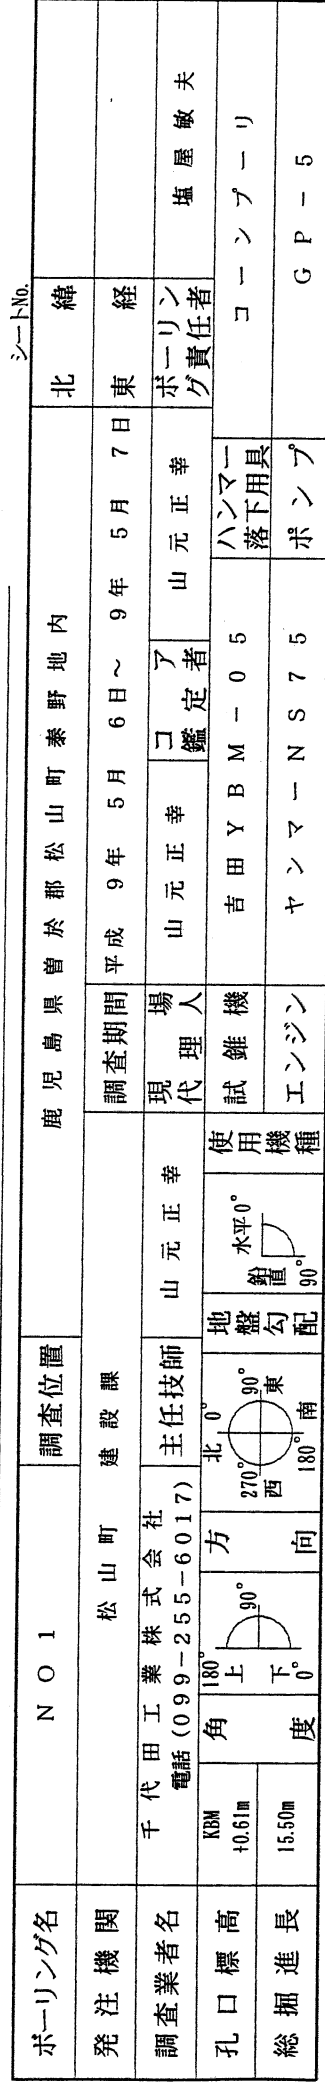 シートNo.
ボーリング名 NO1 調査位置 鹿児島県曽於郡松山町泰野地内 北緯
発注機関 松山町 建設課 調査期間 平成 9年 5月 6日～ 9年 5月 7日 東経
調査業者名 千代田工業株式会社
電話(099-255-6017)
主任技師 山元正幸
現場
代理人
山元正幸
コア
鑑定者
山元正幸
ボーリン
グ責任者
塩屋敏夫
孔口標高 KBM
+0.61m
角度
180°
上
90°
下
0°
方向
北 0°
270° 90°
西 東
180° 南
地盤勾配
水平0°
鉛直
90°
使用機種
試錐機 吉田YBM-05
ハンマー
落下用具
コーンプーリ
総掘進長 15.50m
エンジン ヤンマーNS75 ポンプ GP-5